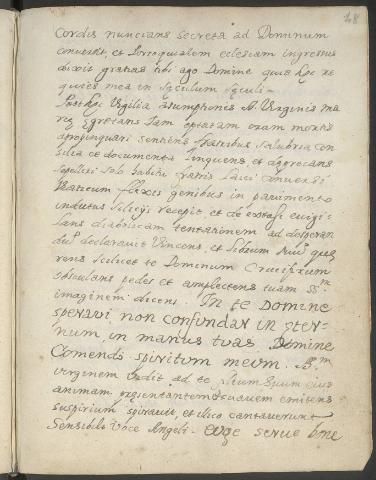 48
Cordis nuncians secreta ad Dominum
convertit, et Parroquialem eclesiam ingressus
dixit gratias tibi ago Domine quia hęc re
quies mea in seculum seculi-
Post hęc Vigilia asumptionis B. Virginis ma
rię egrotans Iam optatam oram mortis
apropinquari sentiens fratribus salubria con
silia et documenta linquens, et aggrecans
sepeliri solo habitu fratris Laici conversi
Viaticum flexis genibus in pavimento
indutus cilicijs recepit, et de extasi evigi-
lans diabolicam tentationem ad desperan
dū declaravit Vincens, et
rens scilicet te Dominum Crucifixum
obsculans pedes et amplectens tuam SS.m
imaginem dicens. In te Domine
speravi non confundar in eter-
num, in manus tuas Domine
Comendo spiritum meum. B.m
virginem vidit ad te filium suum eius
animam pręsentantem suavem emitens
suspirium spiravit, et ilico cantaverunt
sensibili voce Angeli- euge serve bone